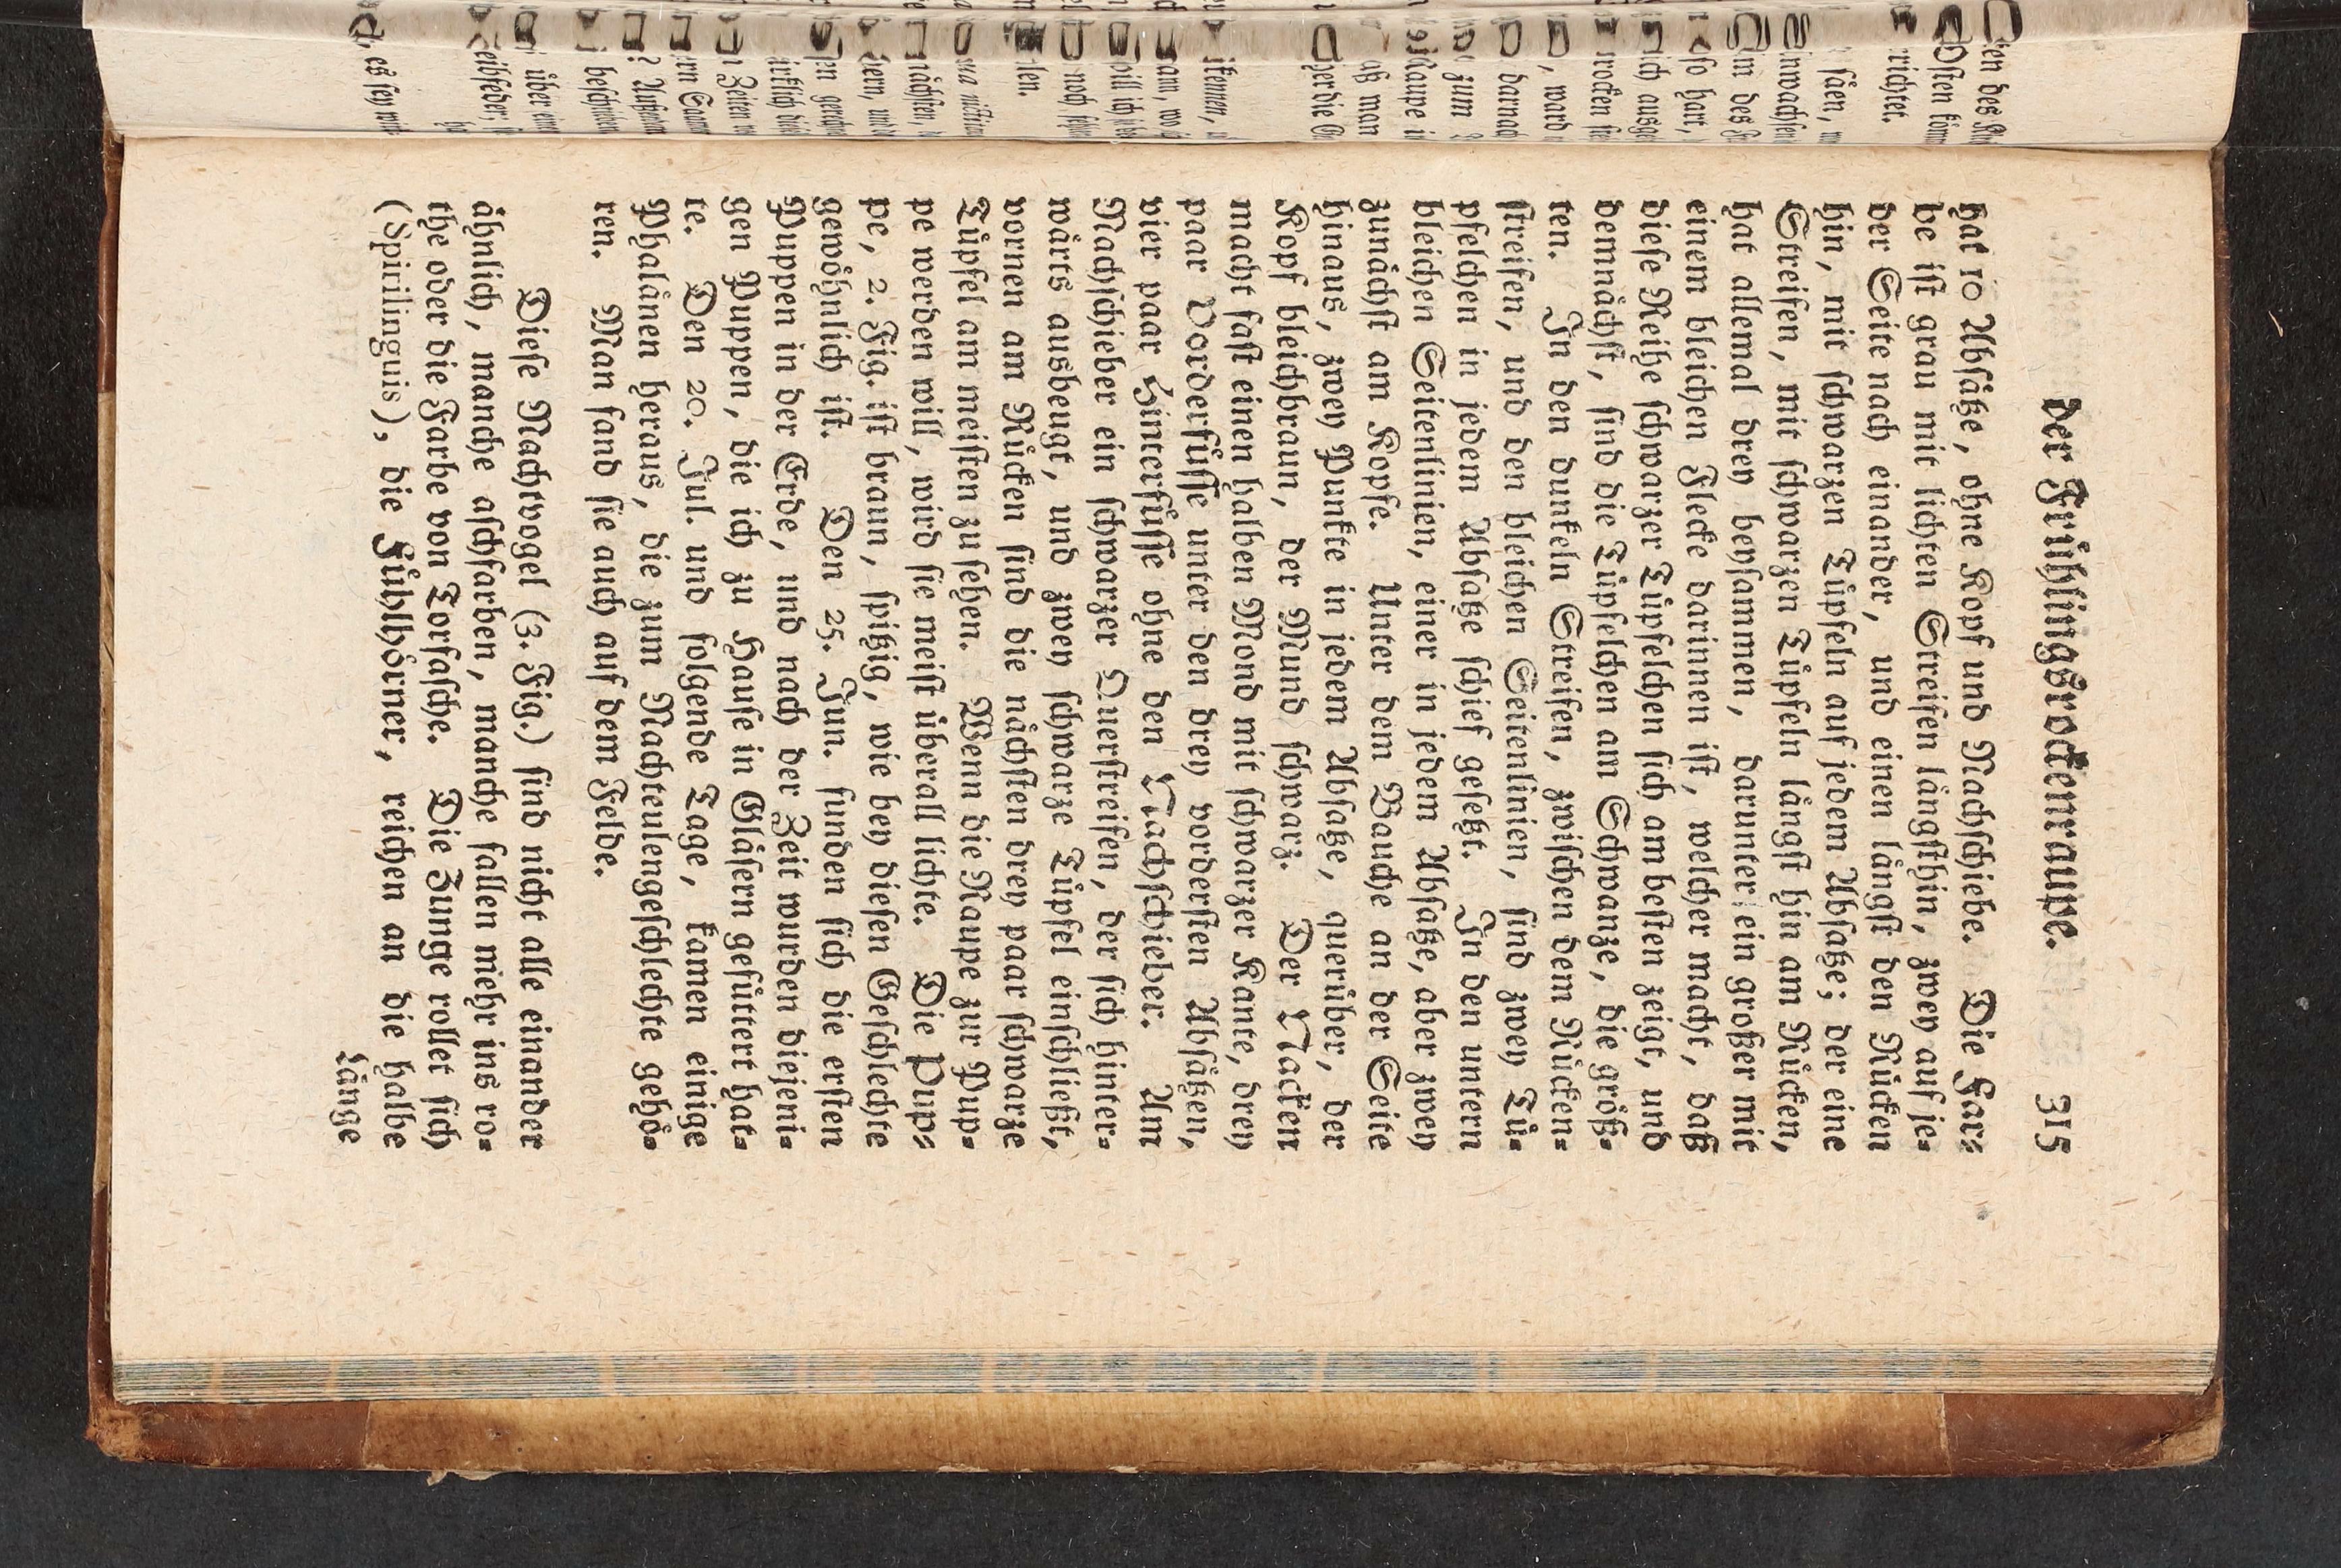 der Frühlingsrockenraupe. 315
hat 10 Absäße, ohne Kopf und Nachschiebe. Die Far⸗
be ist grau mit lichten Streifen längsthin, zwey auf je⸗
der Seite nach einander, und einen längst den Rücken
hin, mit schwarzen Tüpfeln auf jedem Absaße; der eine
Streifen, mit schwarzen Tüpfeln längst hin am Rücken,
hat allemal drey beysammen, darunter ein großer mit
einem bleichen Flecke darinnen ist, welcher macht, daß
diese Reihe schwarzer Tüpfelchen sich am besten zeigt, und
demnächst, sind die Tüpfelchen am Schwanze, die größ⸗
ten. In den dunkeln Streifen, zwischen dem Rücken⸗
streifen, und den bleichen Seitenlinien, sind zwey Tü⸗
pfelchen in jedem Absaße schief geseßt. In den untern
bleichen Seitenlinien, einer in jedem Absaße, aber zwey
zunächst am Kopfe. Unter dem Bauche an der Seite
hinaus, zwey Punkte in jedem Absaße, querüber, der
Kopf bleichbraun, der Mund schwarz. Der Nacken
macht fast einen halben Mond mit schwarzer Kante, drey
paar Vorderfüsse unter den drey vordersten Absäßen,
vier paar Hinterfüsse ohne den Nachschieber. Am
Nachschieber ein schwarzer Querstreifen, der sich hinter⸗
wärts ausbeugt, und zwey schwarze Tüpfel einschließt,
vornen am Rücken sind die nächsten drey paar schwarze
Tüpfel am meisten zu sehen. Wenn die Raupe zur Pup⸗
pe werden will, wird sie meist überall lichte. Die Pup⸗
pe, 2. Fig. ist braun, spißig, wie bey diesen Geschlechte
gewöhnlich ist. Den 25. Jun. funden sich die ersten
Puppen in der Erde, und nach der Zeit wurden diejeni⸗
gen Puppen, die ich zu Hause in Gläsern gefüttert hat⸗
te. Den 20. Jul. und folgende Tage, kamen einige
Phalänen heraus, die zum Nachteulengeschlechte gehö⸗
ren. Man fand sie auch auf dem Felde.
Diese Nachtvogel (3. Fig.) sind nicht alle einander
ähnlich, manche aschfarben, manche fallen mehr ins ro⸗
the oder die Farbe von Torfasche. Die Zunge rollet sich
(Spirilinguis), die Fühlhörner, reichen an die halbe
Länge